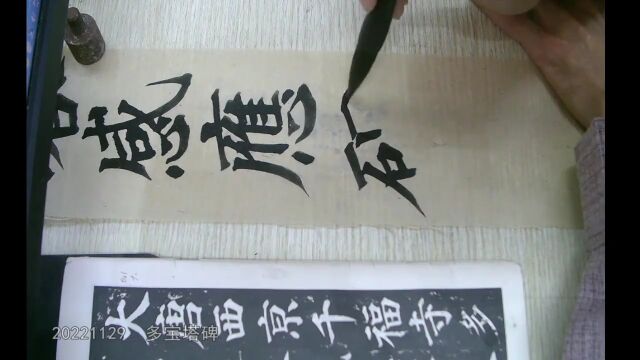 感應
大唐西京千福寺多
20221129 多宝塔碑